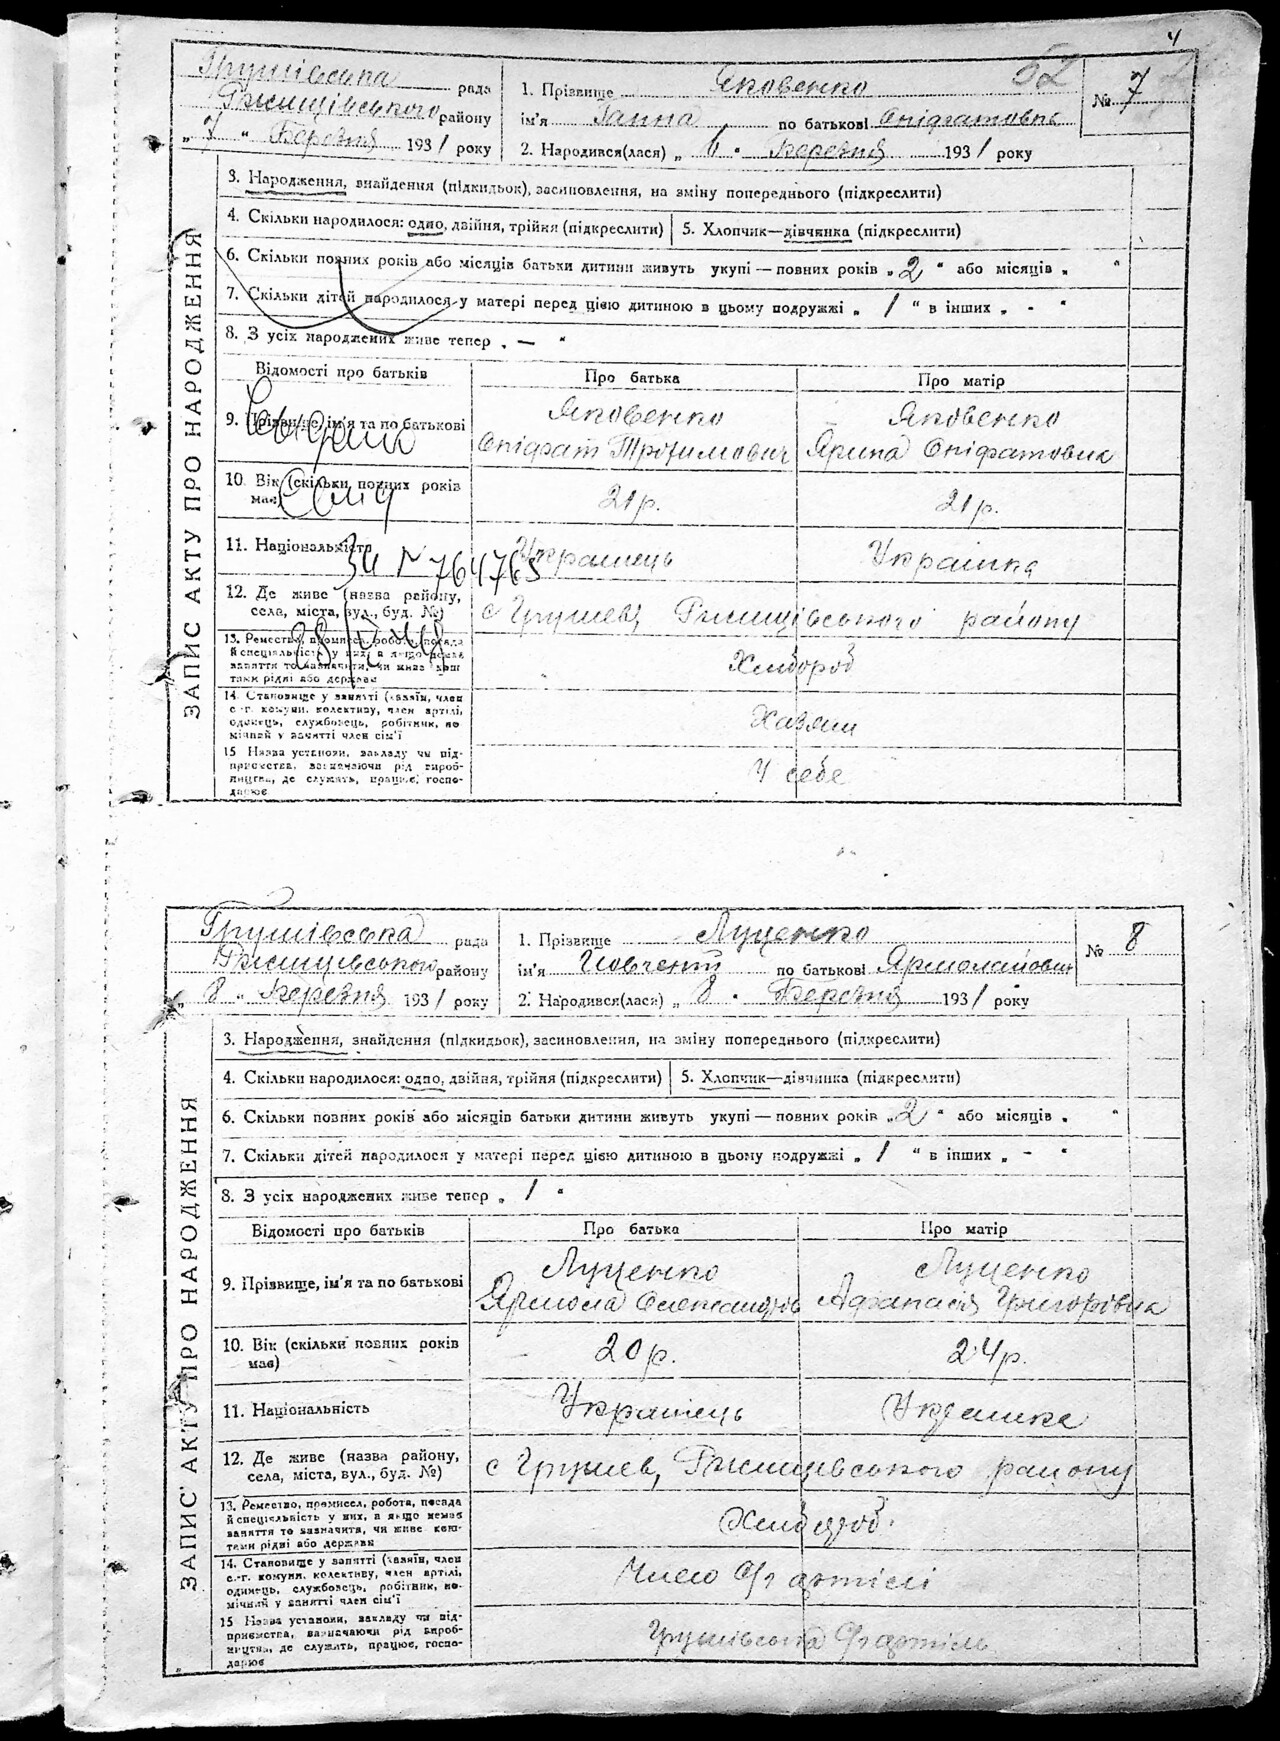 4
52
Грушівська рада
Ржищівського району
„ 7 “ Березня 1931 року
1. Прізвище Яковенко
ім'я Ганна по батькові Опіфатовна
2. Народився(лася) „ 6 “ Березня 1931 року
№ 7
ЗАПИС АКТУ ПРО НАРОДЖЕННЯ
3. Народження, знайдення (підкидьок), засиновлення, на зміну попереднього (підкреслити)
4. Скільки народилося: одно, двійня, трійня (підкреслити) 5. Хлопчик—дівчинка (підкреслити)
6. Скільки повних років або місяців батьки дитини живуть укупі — повних років „ 2 “ або місяців „ “
7. Скільки дітей народилося у матері перед цією дитиною в цьому подружжі „ 1 “ в інших „ - “
8. З усіх народжених живе тепер „ — “
Відомості про батьків Про батька Про матір
9. Прізвище, ім'я та по батькові
Яковенко
Опіфат Трохимович
Яковенко
Ярина Опіфатовна
10. Вік (скільки повних років
має)
21 р. 21 р.
11. Національність Українець Українка
ЗИ № 764765
12. Де живе (назва району,
села, міста, вул., буд. №)
с Грушев, Ржищівського району
13. Ремество, промисел, робота, посада
й спеціяльність у них, а якщо немає
заняття то зазначити, чи живе кош-
тами рідні або держави
Хлибороб
14. Становище у занятті (хазяїн, член
с.-г. комуни, колективу, член артілі,
одинець, службовець, робітник, по-
мічний у занятті член сім'ї
Хазяин
15 Назва установи, закладу чи під-
приємства, зазначаючи рід вироб-
ництва, де служить, працює, госпо-
дарює
У себе
Грушівська рада
Ржищівського району
„ 8 “ Березня 1931 року
1. Прізвище Луценко
ім'я по батькові Ярмолайович
2. Народився(лася) „ 8 “ Березня 1931 року
№ 8
ЗАПИС АКТУ ПРО НАРОДЖЕННЯ
3. Народження, знайдення (підкидьок), засиновлення, на зміну попереднього (підкреслити)
4. Скільки народилося: одно, двійня, трійня (підкреслити) 5. Хлопчик—дівчинка (підкреслити)
6. Скільки повних років або місяців батьки дитини живуть укупі — повних років „ 2 “ або місяців „ “
7. Скільки дітей народилося у матері перед цією дитиною в цьому подружжі „ 1 “ в інших „ - “
8. З усіх народжених живе тепер „ 1 “
Відомості про батьків Про батька Про матір
9. Прізвище, ім'я та по батькові
Луценко
Ярмола
Луценко
Афанасія Григорівна
10. Вік (скільки повних років
має)
20 р. 24 р.
11. Національність Українець Украинка
12. Де живе (назва району,
села, міста, вул., буд. №)
с Грушев, Ржищевського району
13. Ремество, промисел, робота, посада
й спеціяльність у них, а якщо немає
заняття то зазначити, чи живе кош-
тами рідні або держави
Хлибороб
14. Становище у занятті (хазяїн, член
с.-г. комуни, колективу, член артілі,
одинець, службовець, робітник, по-
мічний у занятті член сім'ї
Член С/г артілі
15 Назва установи, закладу чи під-
приємства, зазначаючи рід вироб-
ництва, де служить, працює, госпо-
дарює
Грушівська С/г артіль